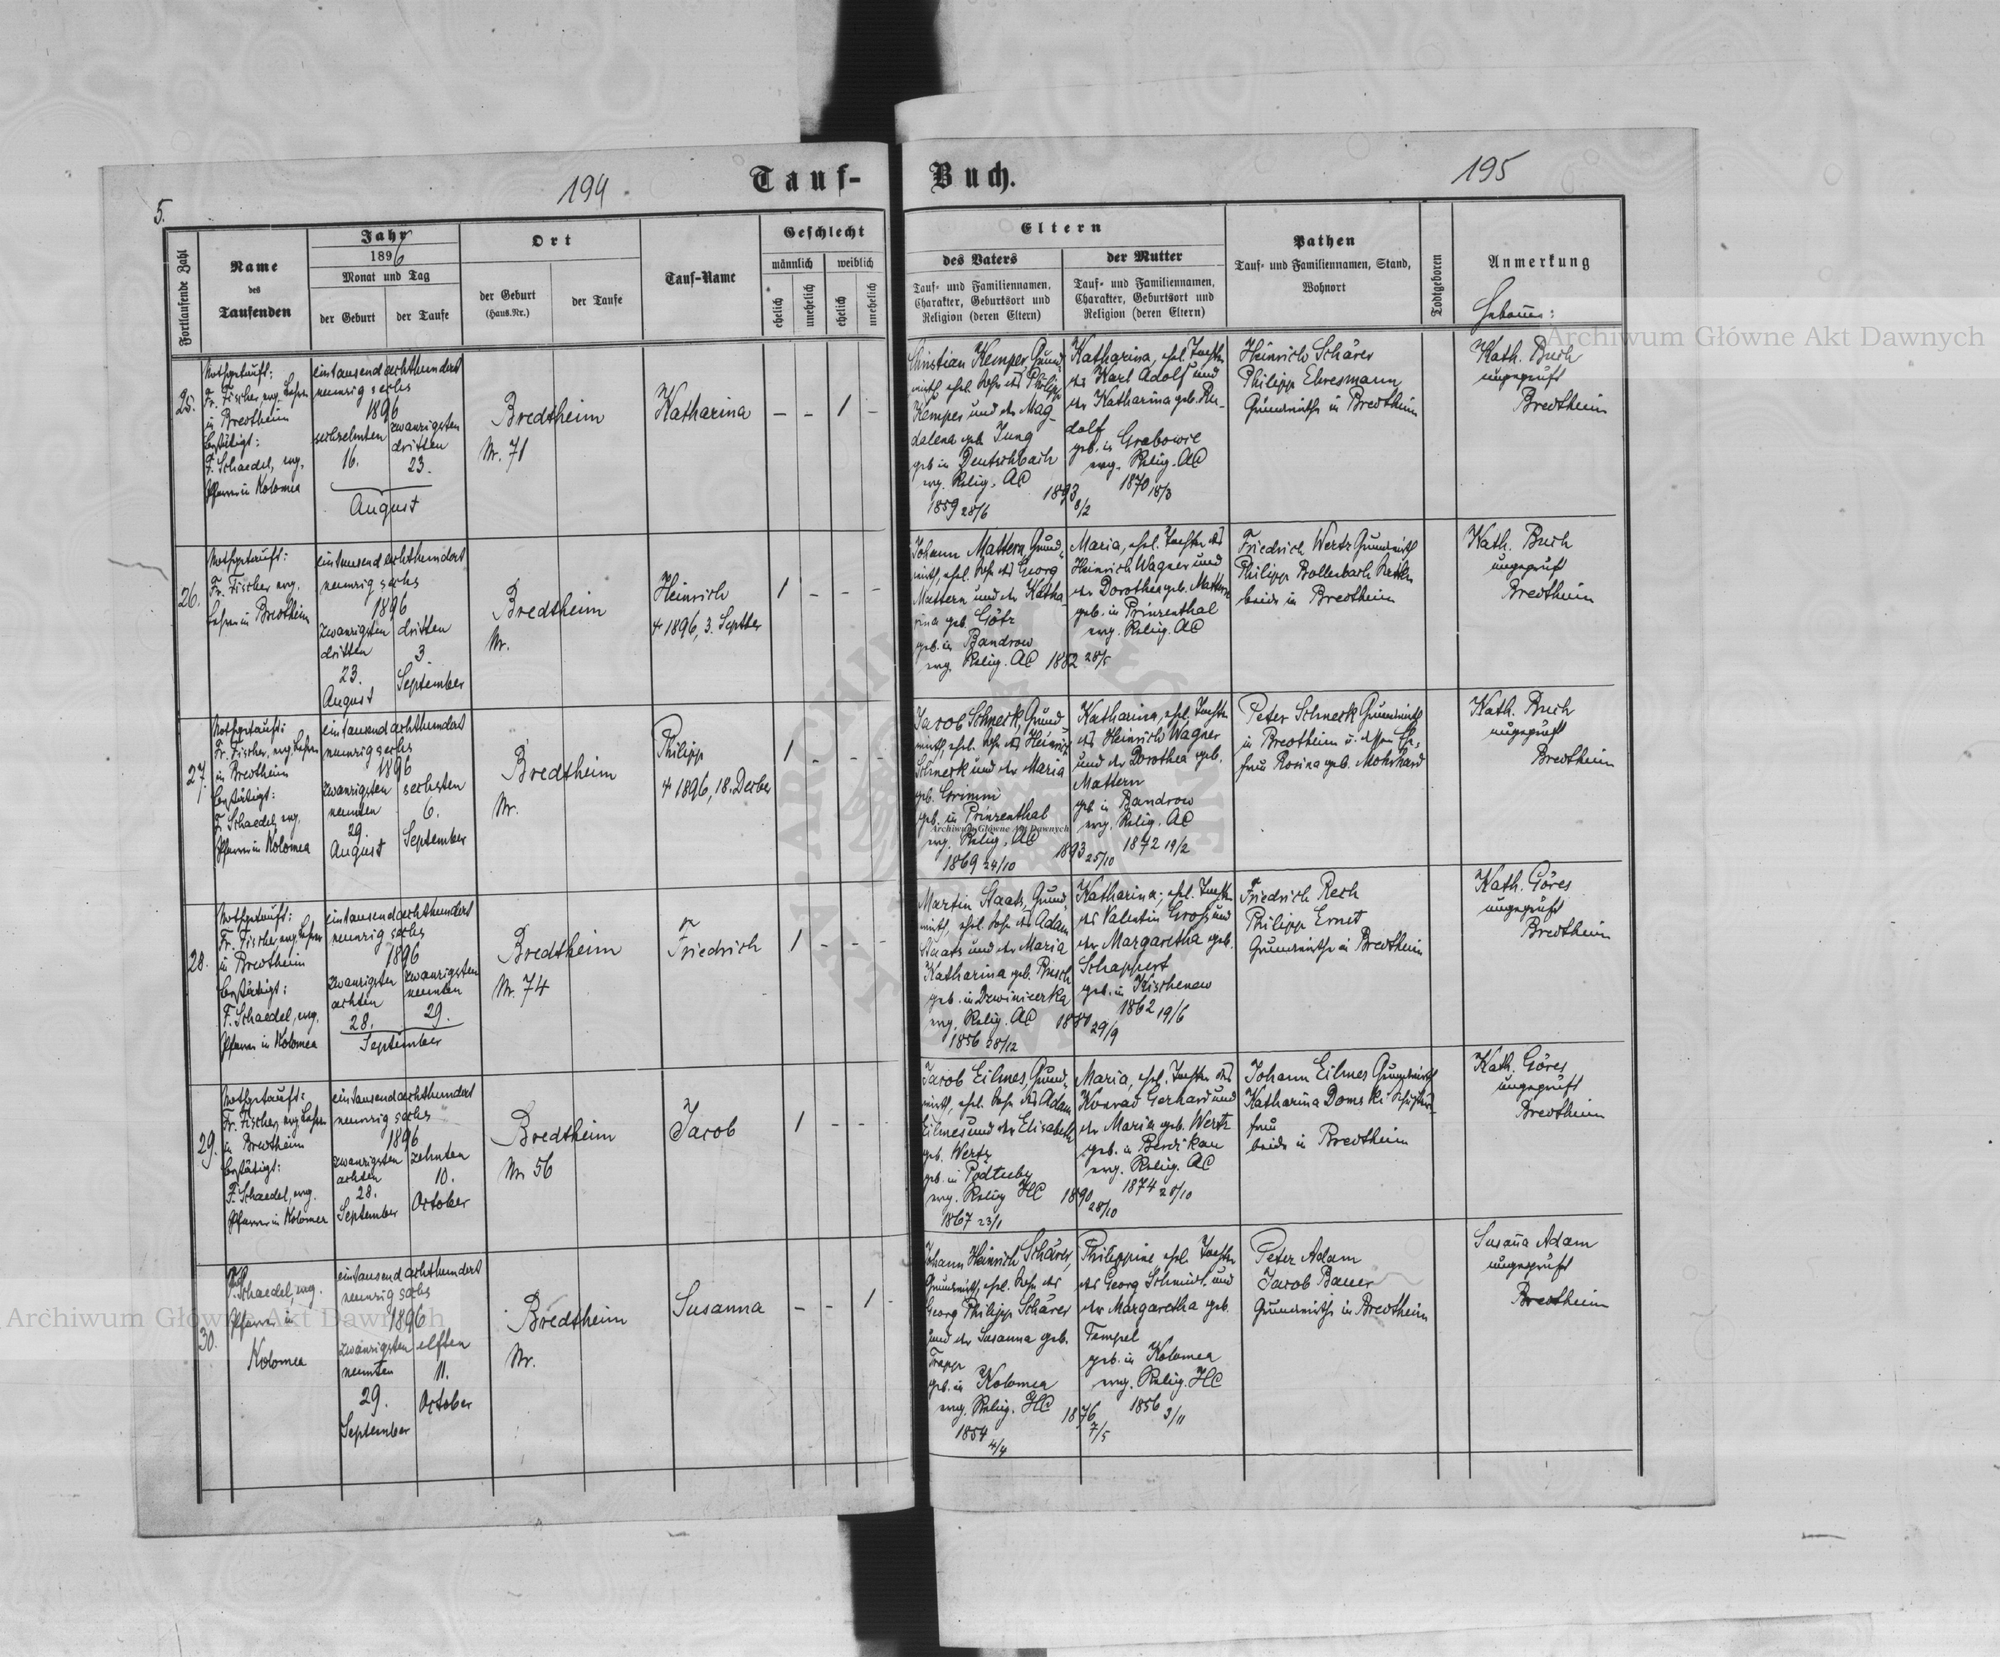 194.
Tauf-
Buch.
195
5.
Fortlaufende Zahl
Name
des
Taufenden
Jahr
1896
Monat und Tag
der Geburt
der Taufe
Ort
der Geburt
(Haus.Nr.)
der Taufe
Tauf-Name
Geschlecht
männlich
weiblich
ehelich
unehelich
ehelich
unehelich
Eltern
des Vaters
Tauf- und Familiennamen,
Charakter, Geburtsort und
Religion (deren Eltern)
der Mutter
Tauf- und Familiennamen,
Charakter, Geburtsort und
Religion (deren Eltern)
Pathen
Tauf- und Familiennamen, Stand,
Wohnort
Todtgeboren
Anmerkung
25.
Nothgetauft:
Fr. Fischer, evg. Lehrer
in Bredtheim
bestätigt:
F. Schaedel, evg.
Pfarrer in Kolomea
eintausendachthundert
neunzig sechs
1896
sechzehnten
16.
zwanzigsten
dritten
23.
August
Bredtheim
Nr. 71
Katharina
– – 1 –
Christian Kemper, Grund-
wirth, ehel. Sohn des Philipp
Kemper und der Mag-
dalena geb. Jung
geb. in Deutschbach
evg. Relig. AC
1859 28/6
1893
8/2
Katharina, ehel. Tochter
des Karl Adolf und
der Katharina geb. Ru-
dolf
geb. in Grabowie
evg. Relig. AC
1870 18/3
Heinrich Schärer
Philipp Ehresmann
Grundwirthe in Bredtheim
Kath. Buch
ungeprüft
Bredtheim
26.
Nothgetauft:
Fr. Fischer evg.
Lehrer in Bredtheim
eintausend achthundert
neunzig sechs
1896
zwanzigsten
dritten
23.
August
dritten
3
September
Bredtheim
Nr.
Heinrich
+ 1896, 3. Septber
1 – – –
Johann Mattern, Grund-
wirth, ehel. Sohn des Georg
Mattern und der Katha-
rina geb. Götz
geb. in Bandrow
evg. Relig. AC
1882 28/5
Maria, ehel. Tochter des
Heinrich Wagner und
der Dorothea geb. Mattern
geb. in Prinzenthal
evg. Relig. AC
Friedrich Wertz Grundwirth
Philipp Bollenbach
beide in Bredtheim
Kath. Buch
ungeprüft
Bredtheim
27.
Nothgetauft:
Fr. Fischer, evg. Lehrer
in Bredtheim
bestätigt:
F. Schaedel, evg.
Pfarrer in Kolomea
eintausend achthundert
neunzig sechs
1896
zwanzigsten
neunten
29.
August
sechsten
6.
September
Bredtheim
Nr.
Philipp
+ 1896, 18. Dezber
1 – – –
Jacob Schneck, Grund
wirth, ehel. Sohn des Heinrich
Schneck und der Maria
geb. Grimm
geb. in Prinzenthal
evg. Relig. AC
1869 24/10
1893
25/10
Katharina, ehel. Tochter
des Heinrich Wagner
und der Dorothea geb.
Mattern
geb. in Bandrow
evg. Relig. AC
1872 19/2
Peter Schneck Grundwirth
in Bredtheim u. dessen Ehe-
frau Rosina geb. Mohrhard
Kath. Buch
ungeprüft
Bredtheim
28.
Nothgetauft:
Fr. Fischer, evg. Lehrer
in Bredtheim
bestätigt:
F. Schaedel, evg.
Pfarrer in Kolomea
eintausendachthundert
neunzig sechs
1896
zwanzigsten
achten
28.
zwanzigsten
neunten
29.
September
Bredtheim
Nr. 74
Friedrich
1 – – –
Martin Staats, Grund-
wirth, ehel. Sohn des Adam
Staats und der Maria
Katharina geb.
geb. in Dzwiniczka
evg. Relig. AC
1856 28/12
29/9
Katharina, ehel. Tochter
des Valentin Groß und
der Margaretha geb.
Schappert
geb. in Kischenew
1862 19/6
Friedrich Rech
Philipp Ernst
Grundwirthe in Bredtheim
Kath. Göres
ungeprüft
Bredtheim
29.
Nothgetauft:
Fr. Fischer, evg. Lehrer
in Bredtheim
bestätigt:
F. Schaedel, evg.
Pfarrer in Kolomea
eintausendachthundert
neunzig sechs
1896
zwanzigsten
achten
28.
September
zehnten
10.
October
Bredtheim
Nr. 56
Jacob
1 – – –
Jacob Eilmes, Grund-
wirth, ehel. Sohn des Adam
Eilmes und der Elisabeth
geb. Wertz
geb. in
evg. Relig HC
1867 23/1
1890
28/10
Maria, ehel. Tochter des
Konrad Gerhard und
der Maria geb. Wertz
geb. in Berdikau
evg. Relig. AC
1874 28/10
Johann Eilmes Grundwirth
Katharina Domski
frau
beide in Bredtheim
Kath. Göres
ungeprüft
Bredtheim
30.
F. Schaedel, evg.
Pfarrer in
Kolomea
eintausend achthundert
neunzig sechs
1896
zwanzigsten
neunten
29.
September
elften
11.
October
Bredtheim
Nr.
Susanna
– – 1 –
Johann Heinrich Schärer,
Grundwirth, ehel. Sohn des
Georg Philipp Schärer
und der Susanna geb.
Trapp
geb. in Kolomea
evg. Relig. HC
1854 4/4
1876
7/5
Philippine ehel. Tochter
des Georg Schmidt und
der Margaretha geb.
Tempel
geb. in Kolomea
evg. Relig. HC
1856 3/11
Peter Adam
Jacob Bauer
Grundwirthe in Bredtheim
Susaña Adam
ungeprüft
Bredtheim
Archiwum Główne Akt Dawnych
Archiwum Główne Akt Dawnych
Archiwum Główne Akt Dawnych